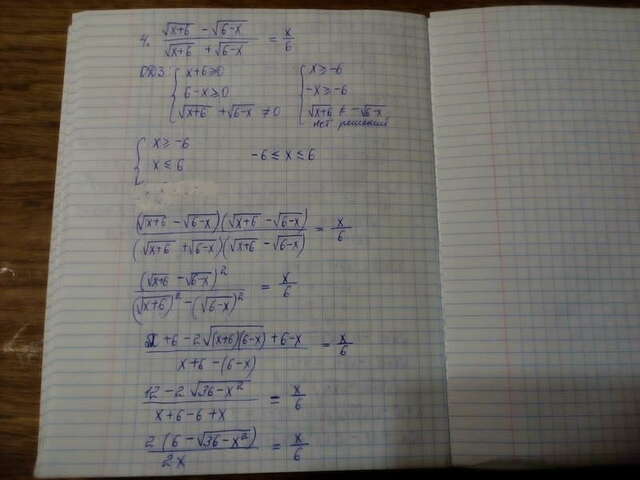 4. (√(x+6) − √(6−x)) / (√(x+6) + √(6−x)) = x/6
ОДЗ: { x+6 ≥ 0 { x ≥ −6
6−x ≥ 0 −x ≥ −6
√(x+6) + √(6−x) ≠ 0 √(x+6) ≠ −√(6−x)
нет решений
{ x ≥ −6
x ≤ 6 −6 ≤ x ≤ 6
(√(x+6) − √(6−x))(√(x+6) − √(6−x)) / (√(x+6) + √(6−x))(√(x+6) − √(6−x)) = x/6
(√(x+6) − √(6−x))² / ((√(x+6))² − (√(6−x))²) = x/6
(x+6 − 2√((x+6)(6−x)) + 6−x) / (x+6 − (6−x)) = x/6
(12 − 2√(36−x²)) / (x+6−6+x) = x/6
2(6 − √(36−x²)) / 2x = x/6